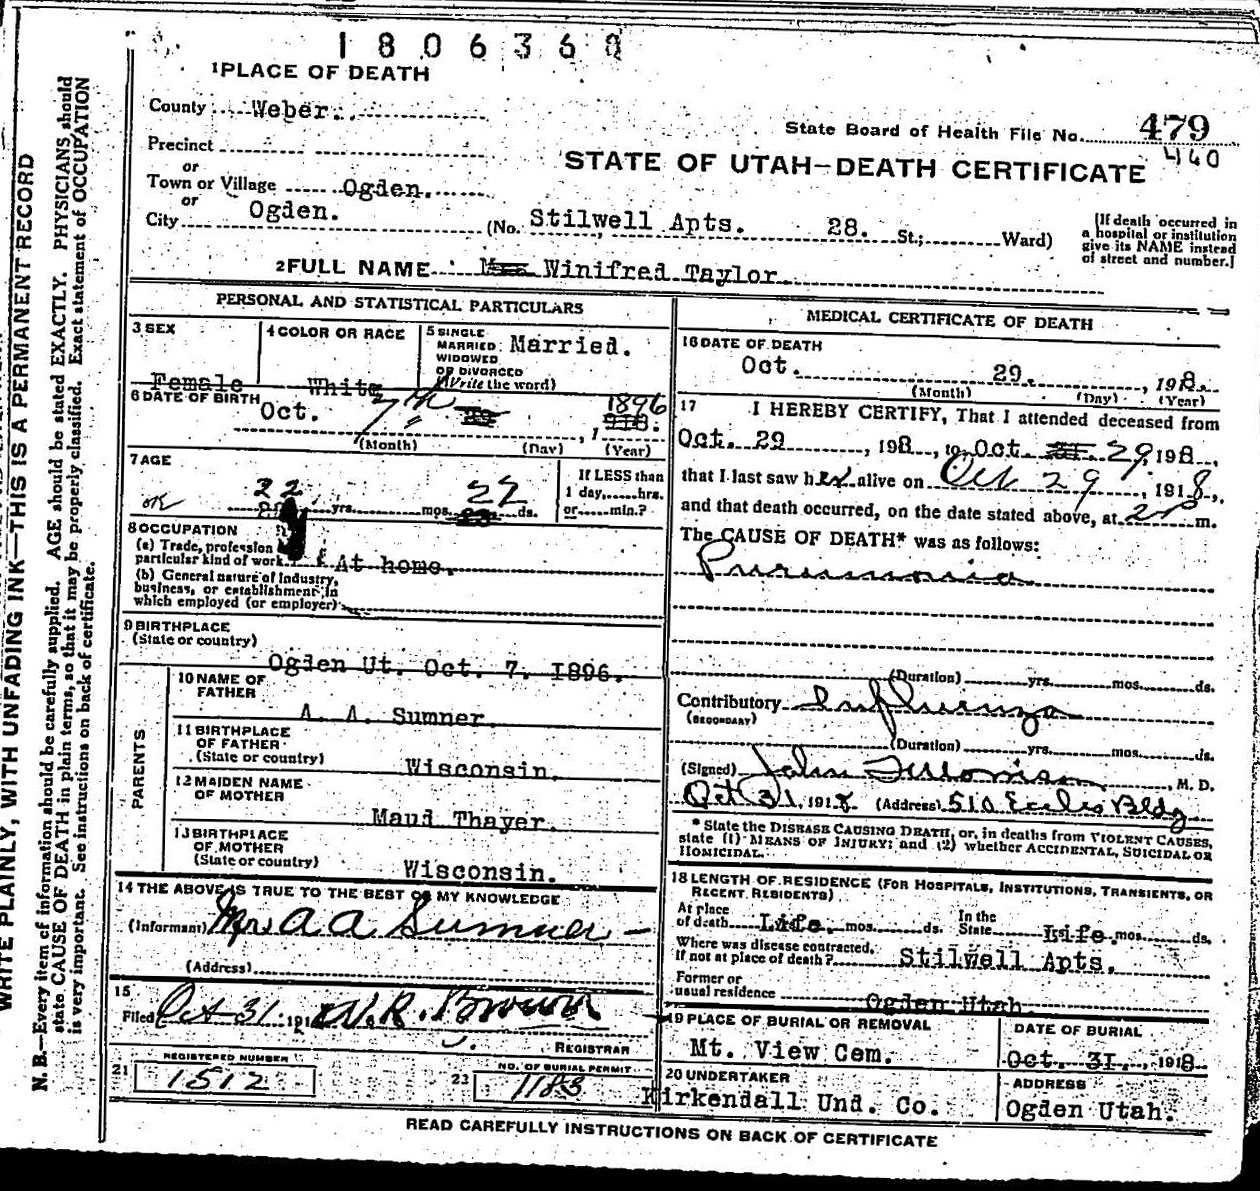 1806368
1 PLACE OF DEATH
County Weber.
State Board of Health File No. 479
440
Precinct
or
Town or Village Ogden.
or
City Ogden.
STATE OF UTAH—DEATH CERTIFICATE
(No. Stilwell Apts. 28. St.; Ward)
[If death occurred in
a hospital or institution
give its NAME instead
of street and number.]
2 FULL NAME Mrs Winifred Taylor
PERSONAL AND STATISTICAL PARTICULARS
3 SEX
Female
4 COLOR OR RACE
White
5 SINGLE
MARRIED
WIDOWED
OR DIVORCED
(Write the word)
Married.
6 DATE OF BIRTH
Oct. 7th 1896
, 1918.
(Month) (Day) (Year)
7 AGE
22 yrs. mos. 22 ds.
If LESS than
1 day,......hrs.
or......min.?
8 OCCUPATION
(a) Trade, profession
particular kind of work At home.
(b) General nature of Industry,
business, or establishment in
which employed (or employer)
9 BIRTHPLACE
(State or country)
Ogden Ut. Oct. 7. 1896.
PARENTS
10 NAME OF
FATHER
A. A. Sumner.
11 BIRTHPLACE
OF FATHER
(State or country)
Wisconsin.
12 MAIDEN NAME
OF MOTHER
Maud Thayer.
13 BIRTHPLACE
OF MOTHER
(State or country)
Wisconsin.
14 THE ABOVE IS TRUE TO THE BEST OF MY KNOWLEDGE
(Informant) Mr. A A Sumner
(Address)
15
Filed Oct 31 191 W.R. Brown
REGISTRAR
21 REGISTERED NUMBER
1512
22 NO. OF BURIAL PERMIT
1183
MEDICAL CERTIFICATE OF DEATH
16 DATE OF DEATH
Oct. 29. , 1918.
(Month) (Day) (Year)
17 I HEREBY CERTIFY, That I attended deceased from
Oct. 29 , 198 , to Oct 29, 198 ,
that I last saw her alive on Oct 29 , 1918,
and that death occurred, on the date stated above, at 2 P m.
The CAUSE OF DEATH* was as follows:
Pneumonia
(Duration) yrs. mos. ds.
Contributory Influenza
(SECONDARY)
(Duration) yrs. mos. ds.
(Signed) John , M. D.
Oct 31, 1918. (Address) 510 Eccles Bldg
* State the DISEASE CAUSING DEATH, or, in deaths from VIOLENT CAUSES,
state (1) MEANS OF INJURY; and (2) whether ACCIDENTAL, SUICIDAL OR
HOMICIDAL.
18 LENGTH OF RESIDENCE (FOR HOSPITALS, INSTITUTIONS, TRANSIENTS, OR
RECENT RESIDENTS)
At place
of death Life. mos. ds.
In the
State Life. mos. ds.
Where was disease contracted,
If not at place of death? Stilwell Apts.
Former or
usual residence Ogden Utah.
19 PLACE OF BURIAL OR REMOVAL
Mt. View Cem.
DATE OF BURIAL
Oct. 31. , 1918
20 UNDERTAKER
Kirkendall Und. Co.
ADDRESS
Ogden Utah.
READ CAREFULLY INSTRUCTIONS ON BACK OF CERTIFICATE
WRITE PLAINLY, WITH UNFADING INK—THIS IS A PERMANENT RECORD
N. B.—Every item of information should be carefully supplied. AGE should be stated EXACTLY. PHYSICIANS should
state CAUSE OF DEATH in plain terms, so that it may be properly classified. Exact statement of OCCUPATION
is very important. See instructions on back of certificate.